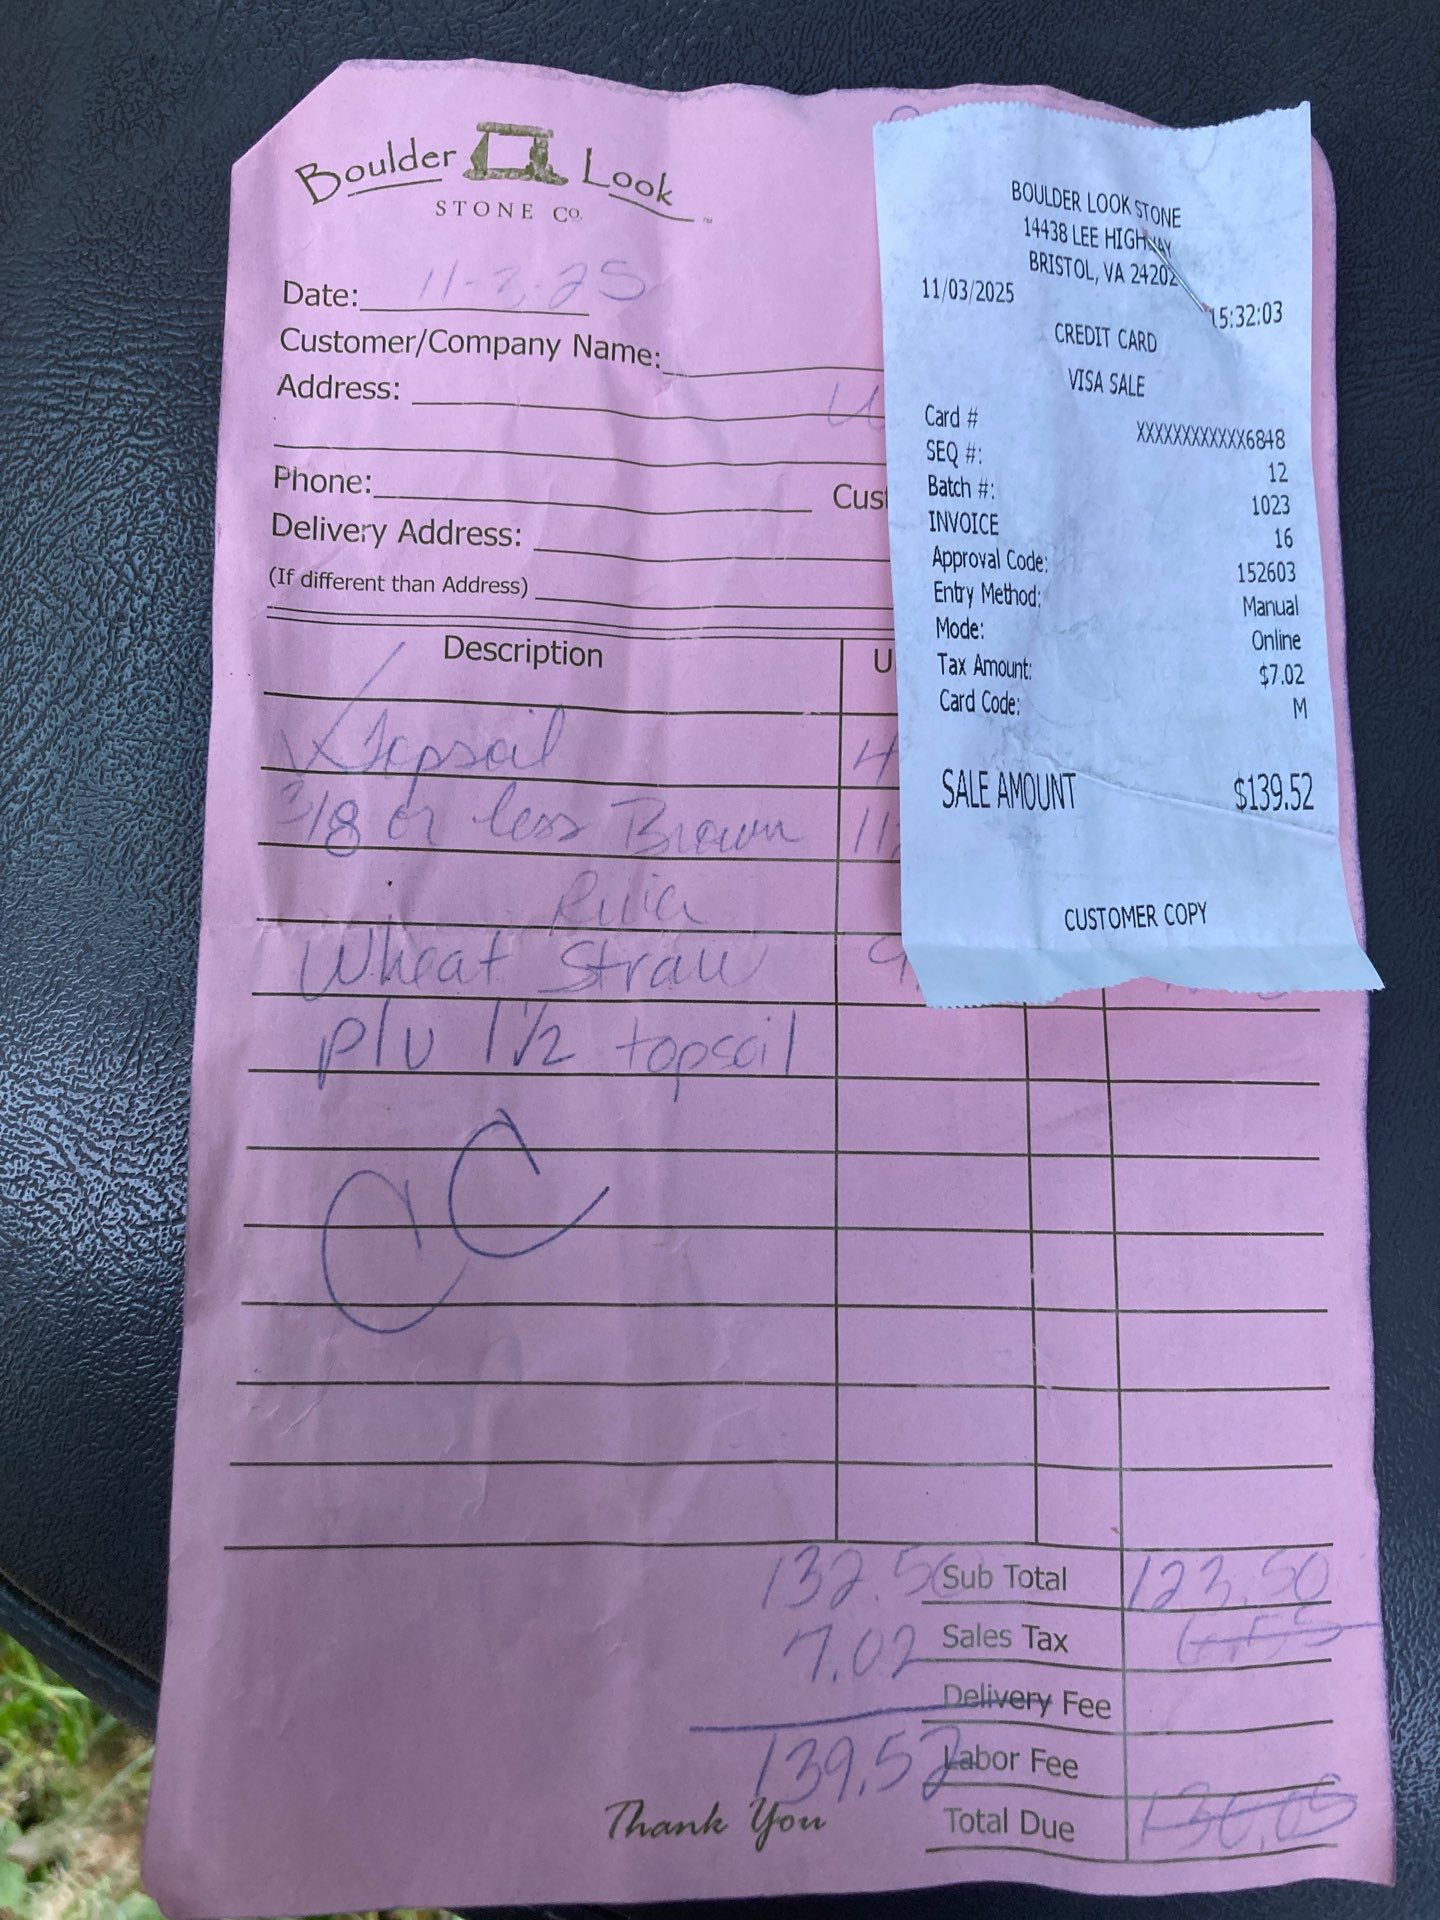 Boulder Look
STONE Co.
Date: 11-3-25
Customer/Company Name:
Address:
Phone: Cust
Delivery Address:
(If different than Address)
Description U
Topsoil 4
3/8 or less Brown 11
River
Wheat Straw 9
p/u 1 1/2 topsoil
CC
132.50 Sub Total 123.50
7.02 Sales Tax 6.55
Delivery Fee
139.52 Labor Fee
Thank You Total Due 130.05
BOULDER LOOK STONE
14438 LEE HIGHWAY
BRISTOL, VA 24202
11/03/2025 15:32:03
CREDIT CARD
VISA SALE
Card # XXXXXXXXXXXX6848
SEQ #: 12
Batch #: 1023
INVOICE 16
Approval Code: 152603
Entry Method: Manual
Mode: Online
Tax Amount: $7.02
Card Code: M
SALE AMOUNT $139.52
CUSTOMER COPY